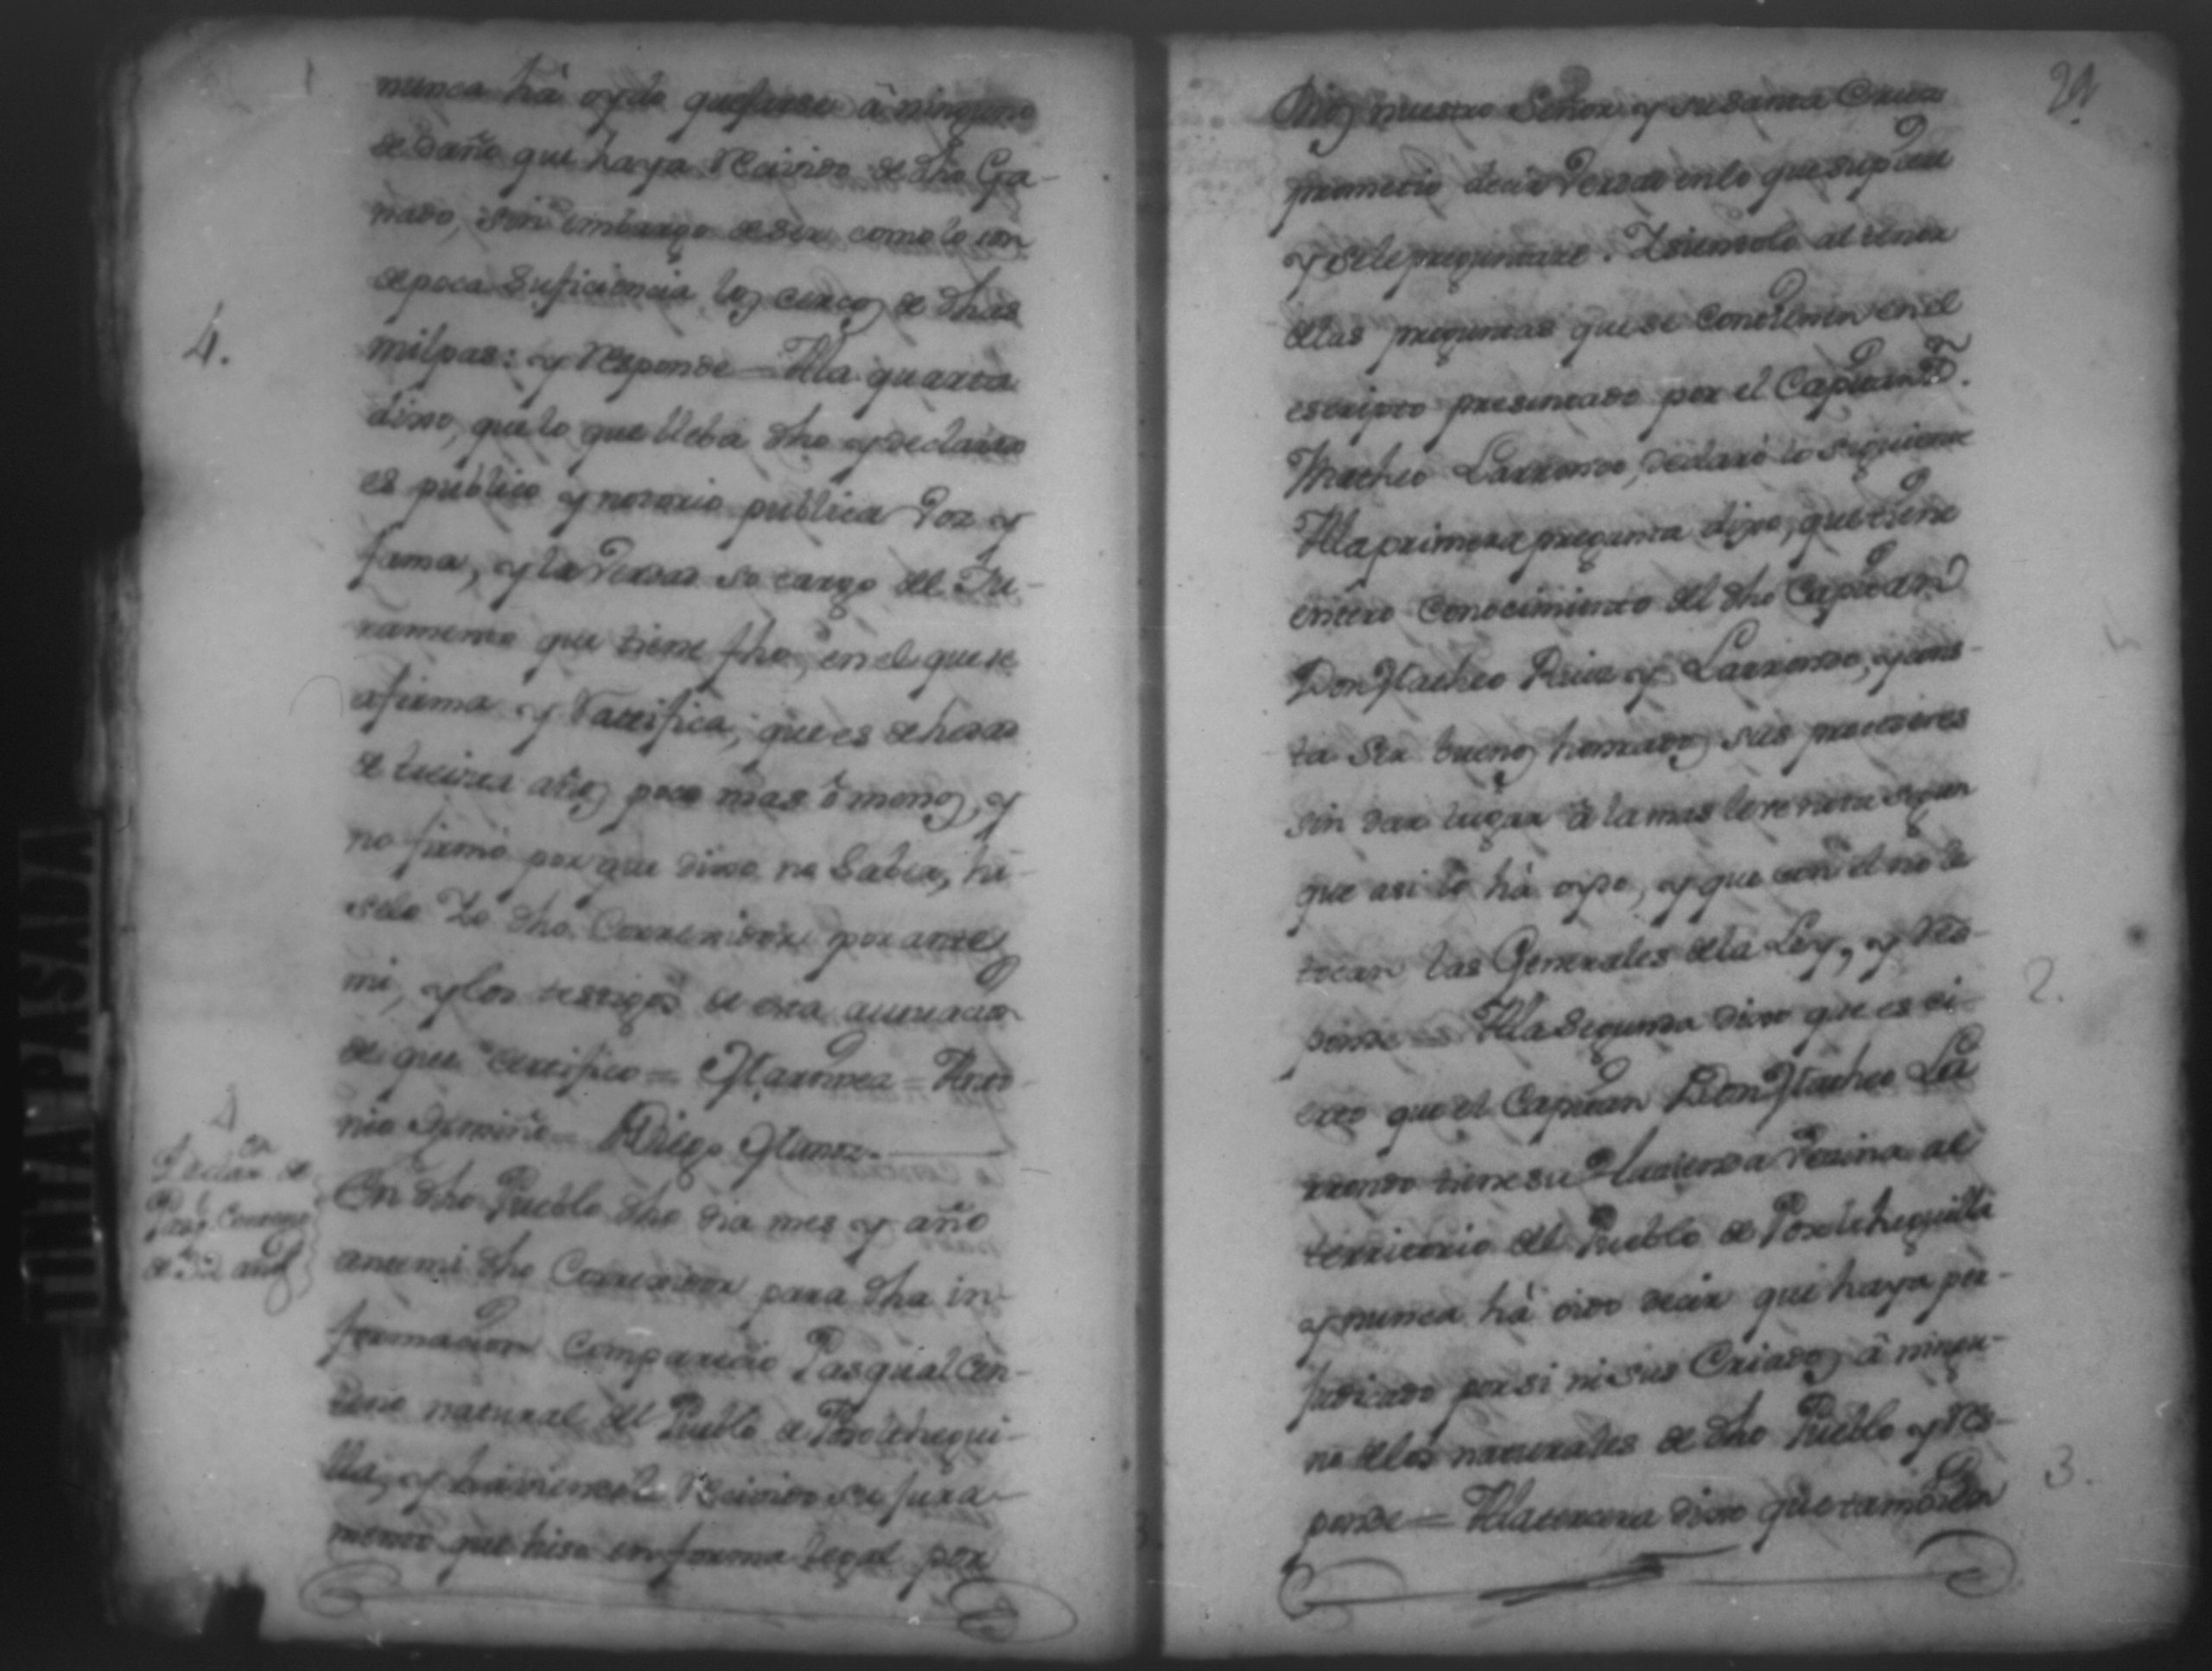 nunca há oydo quejarse â ninguno
de daño que haya recivido de dho Ga-
nado, sin embargo de ser como lo son
de poca suficiencia los cercos de dhas
4.
milpas: y responde = Alla quarta
dixo, que lo que lleba dho y declarado
es publico y notorio publica voz y
fama, y la verdad so cargo del Ju-
ramento que tiene fho, en el que se
afirma y ratifica, que es de hedad
de treinta años poco mas ô menos, y
no firmó por que dixo no saber, hi-
selo Yo dho Correxidor por ante
mi, y los testigos de esta
de que certifico = = Anto-
nio = Diego Muñoz
Declar.on de
de años
En dho Pueblo dho dia mes y año
ante mi dho Correxidor para dha in-
formacion comparecio Pasqual Cen-
teno natural del Pueblo de Posoltehequi-
lla, y haviendole recivido su jura-
mento que hiso en forma legal por
29
Dios nuestro Señor y su Santa Cruz
prometio decir verdad en lo que supiere
y se le preguntare. Y siendolo al tenor
dellas preguntas que se contienen en el
escripto presentado por el Capitan D.n
Matheo Larrondo, declaró lo siguiente
Alla primera pregunta dixo, que tiene
entero conocimiento del dho Capitan
Don Matheo Ruiz y Larrondo, y cons-
ta ser buenos honrados sus procederes
sin dar lugar â la mas leve nota segun
que asi lo há oydo, y que con el no le
tocan las Generales dela Ley, y res-
2.
ponde = Alla segunda dixo que es ci-
erto que el Capitan Don Matheo La
rrondo tiene su Hacienda vecina al
territorio del Pueblo de Posoltehequilla
y nunca há oido decir que haya per-
judicado por si ni sus Criados â ningu-
no dellos naturales de dho Pueblo y res-
3.
ponde = Alla tercera dixo que tambien